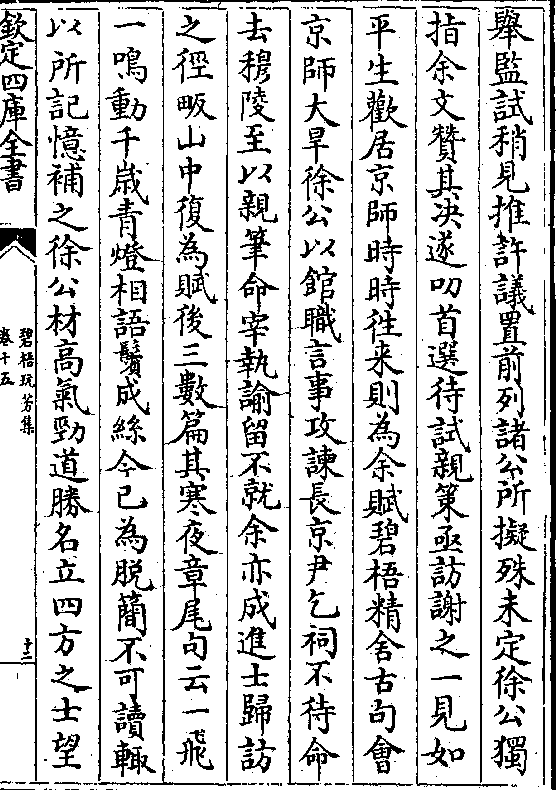 舉監試稍見推許議置前列諸公所擬殊未定徐公獨
指余文贊其决遂叨首選待試親策亟訪謝之一見如
平生歡居京師時時徃来則為余賦碧梧精舍古句會
京師大旱徐公以館職言事攻諫長京尹乞祠不待命
去穆陵至以親筆命宰執諭留不就余亦成進士歸訪
之徑畈山中復為賦後三數篇其寒夜章尾句云一飛
一鳴動千歳青燈相語鬢成絲今已為脱簡不可讀輙
以所記憶補之徐公材高氣勁道勝名立四方之士望
欽定四庫全書
碧梧玩芳集
卷十五
十二